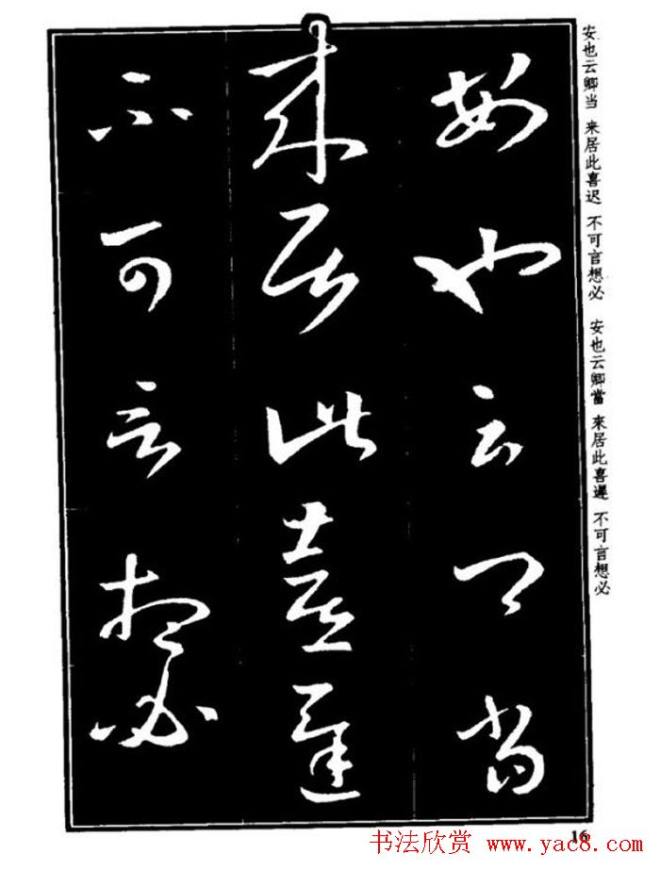 安也云卿當
来居此喜遲
不可言想必
安也云卿当 来居此喜迟 不可言想必
安也云卿當 來居此喜遲 不可言想必
16
书法欣赏 www.yac8.com